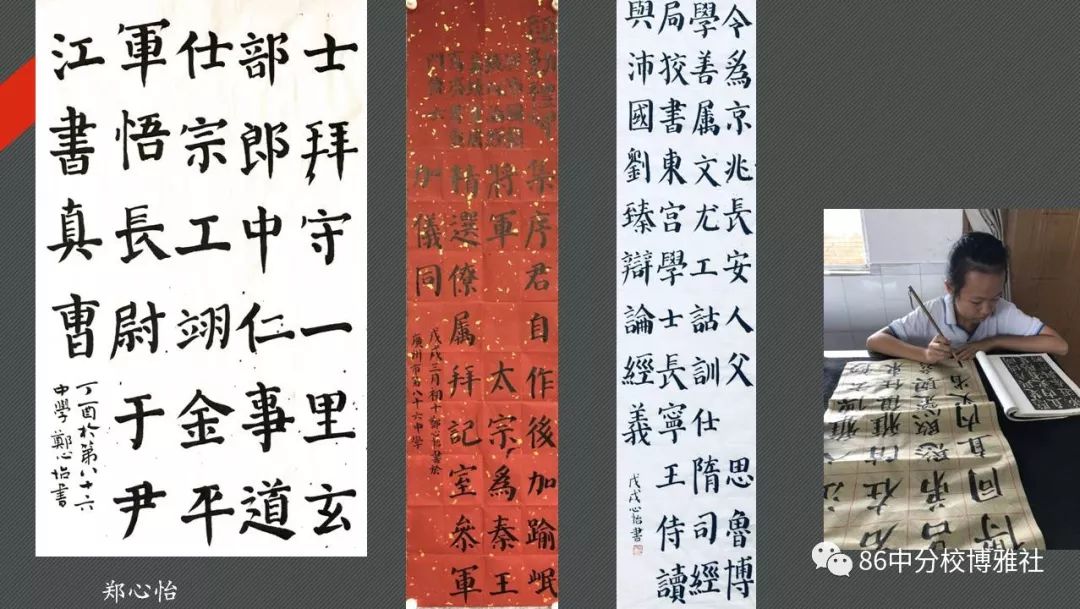 士拜守一里玄
部郎中仁事道
仕宗工翊金平
軍悟長尉于尹
江書真曹
丁酉於第八十六
中學鄭心怡書
集序君自作後加踰岷
將軍太宗為秦王
精選僚属拜記室參軍
加儀同
戊戌三月初十鄭心怡書於
廣州市第八十六中學
令為京兆長安人父思魯博
學善属文尤工詁訓仕隋司經
局挍書東宮學士長寧王侍讀
與沛國劉臻辯論經義
戊戌心怡書
郑心怡
86中分校博雅社